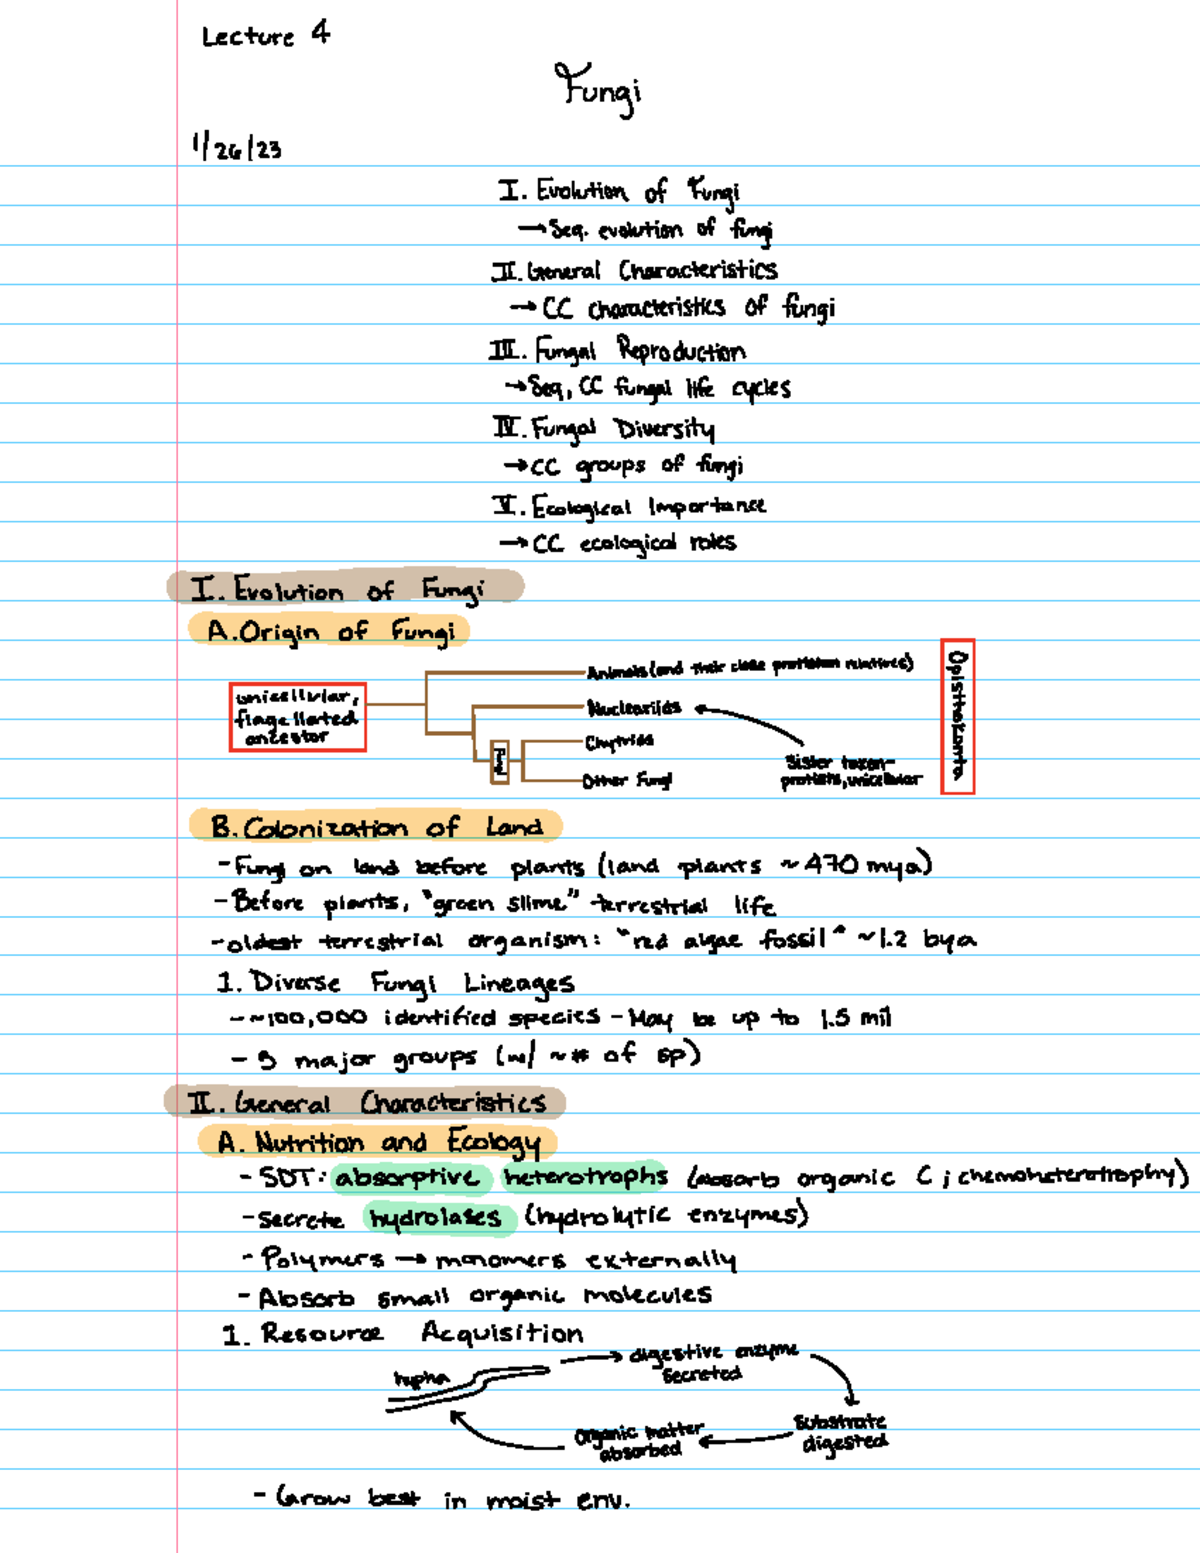 Lecture 4
Fungi
1/26/23
I. Evolution of Fungi
→ Seq. evolution of fungi
II. General Characteristics
→ CC characteristics of fungi
III. Fungal Reproduction
→ Seq, CC fungal life cycles
IV. Fungal Diversity
→ CC groups of fungi
V. Ecological Importance
→ CC ecological roles
I. Evolution of Fungi
A. Origin of Fungi
unicellular,
flagellated
ancestor
Animals (and their close protistan relatives)
Nucleariids
Fungi
Chytrids
Other Fungi
Sister taxon-
protists, unicellular
Opisthokonta
B. Colonization of Land
- Fungi on land before plants (land plants ~ 470 mya)
- Before plants, "green slime" terrestrial life
- oldest terrestrial organism: "red algae fossil" ~1.2 bya
1. Diverse Fungi Lineages
- ~100,000 identified species - May be up to 1.5 mil
- 5 major groups (w/ ~# of sp)
II. General Characteristics
A. Nutrition and Ecology
- SDT: absorptive heterotrophs (absorb organic C ; chemoheterotrophy)
- Secrete hydrolases (hydrolytic enzymes)
- Polymers → monomers externally
- Absorb small organic molecules
1. Resource Acquisition
hypha
→ digestive enzyme
secreted
Substrate
digested
Organic matter
absorbed
- Grow best in moist env.